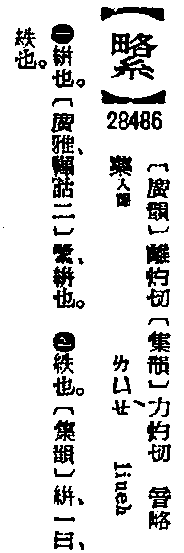 28486
〔廣韻〕離灼切〔集韻〕力灼切 音略
藥入聲 ㄌㄩㄝˋ liueh
㊀絣也。〔廣雅、釋詁二〕、絣也。㊁紩也。〔集韻〕絣、一曰、
紩也。